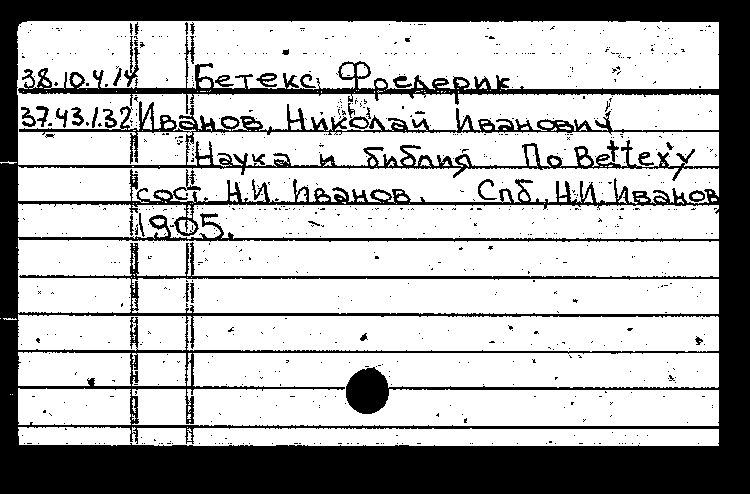 38.10.4.14 Бетекс, Фредерик.
37.43.1.32 Иванов, Николай Иванович
Наука и библия По Bettex'у
сост. Н.И. Иванов. Спб., Н.И. Иванов
1905.